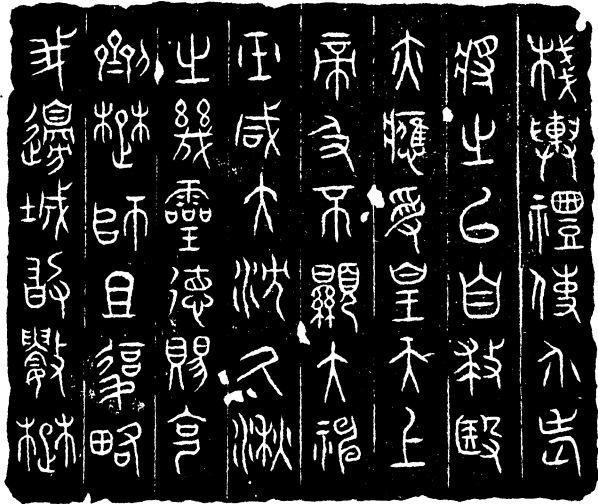 棧輿禮使介老
將之以自救殹
亦應受皇天上
帝及不顯大神
巫咸大沈久湫
之幾靈德賜克
劑楚師且復略
我邊城敢數楚